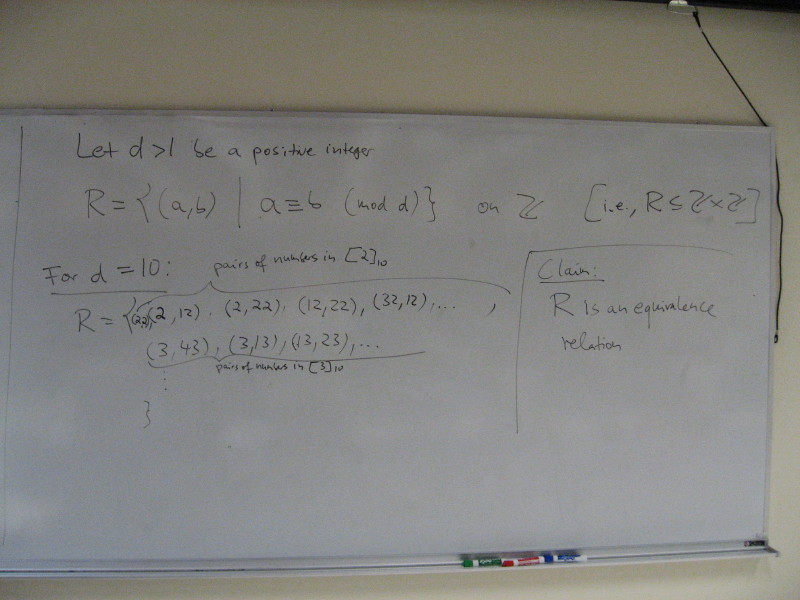 Let d>1 be a positive integer
R = {(a,b) | a ≡ b (mod d)} on ℤ [i.e., R ⊆ ℤ×ℤ]
For d = 10:
pairs of numbers in [2]₁₀
R = {(2,2), (2,12), (2,22), (12,22), (32,12), ... ,
(3,43), (3,13), (13,23), ...
pairs of numbers in [3]₁₀
⋮
}
Claim:
R is an equivalence
relation